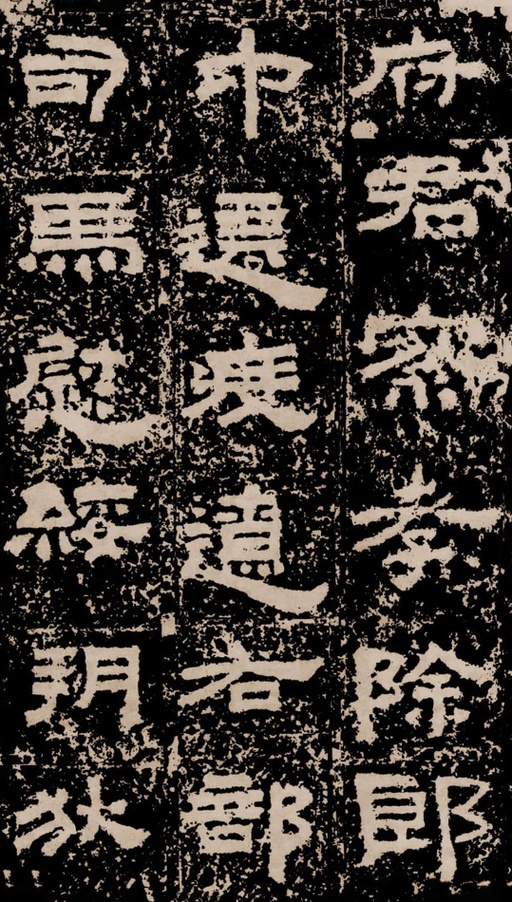 府君察孝除郎
中遷度遼右部
司馬慰綏朔狄